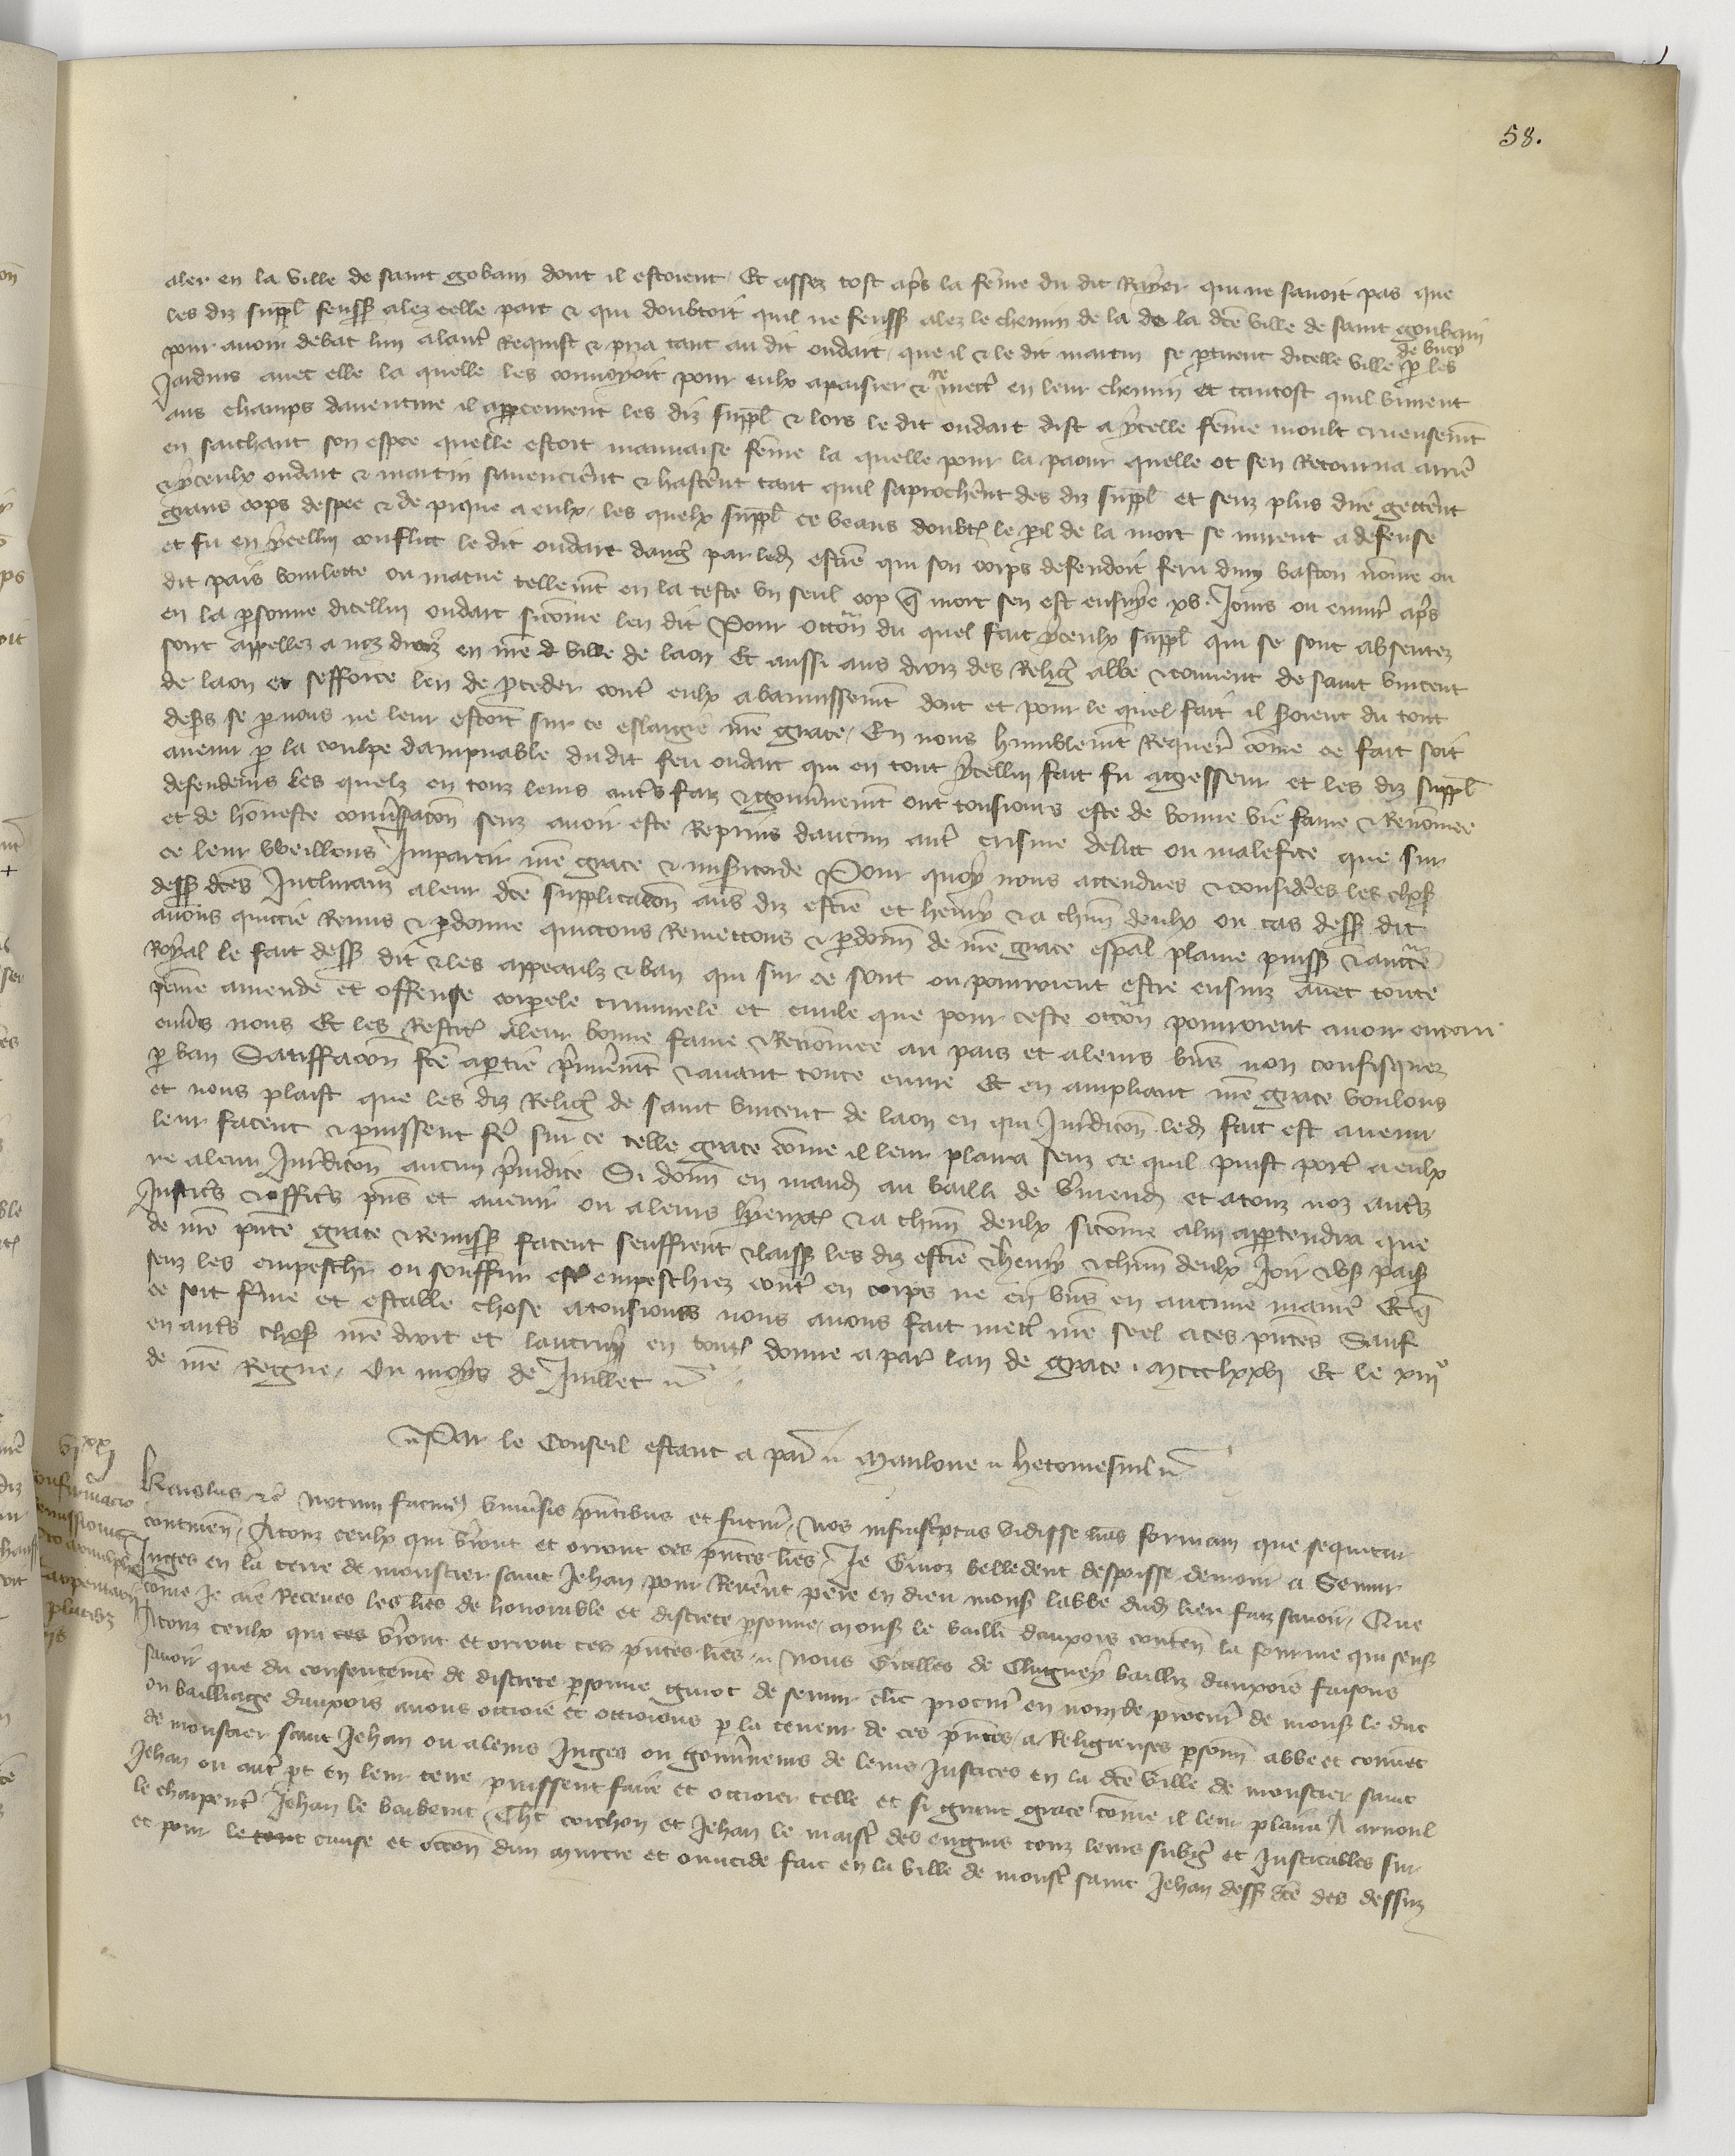 58.
aler en la ville de saint gobain dont il estoient Et assez tost ap̃s la fẽme du dit Rayer qui ne savoit pas que
les diz suppl̃ feuss̃ alez celle part & qui doubtoit quil ne feuss̃ alez le chemin de la de la dc̃e ville de saint goubain
pour auoir debat lun a lautr̃ Requist & pria tant au dit oudart que il & le dit martin se p̃tirent dicelle ville de bucy p̃ les
Jardins avec elle la quelle les convoyoit pour eulx apaisier & remectr̃ en leur chemin et tantost quil vinrent
aus champs daventure il app̃ceurent les diz suppl̃ & lors le dit oudart dist a ycelle fẽme moult crueusemt̃
en saichant son espee quelle estoit mauvaise fẽme la quelle pour la paour quelle ot sen Retourna arrier̃
& yceulx oudart & martin savencier̃nt & hastẽrnt tant quil saprochẽrnt des diz suppl̃ et senz plus dire gettẽrnt
grans cops despee & de pique a eulx les quelx suppl̃ ce veans doubt̃ le p̃il de la mort se mirent a defense
et fu en ycellui conflict le dit oudart par led̃ estiẽ qui son corps defendoit feru dun baston nõme ou
dit pais boulette ou macue tellemt̃ en la teste un seul cop q̃ mort sen est ensuye xv. Jours ou enuir̃ ap̃s
en la p̃sonne dicellui oudart sicom̃e len dit Pour occõn du quel fait yceulx suppl̃ qui se sont absentez
sont appellez a noz droiz en nr̃e ville de laon Et aussi aus droiz des Relig̃ abbe & couuent de saint vincent
de laon et sefforce len de p̃ceder contr̃ eulx a banissemt̃ dont et pour le quel fait il s̃oient du tout
des̃s se p̃ nous ne leur estoit sur ce eslargie nr̃e grace En nous humblemt̃ Requer̃ cõme ce fait soit
auenu p̃ la coulpe dampnable du dit feu oudart qui en tout ycellui fait fu agresseur et les diz suppl̃
defendeurs Les quelz en touz leurs autr̃s faiz & gouũnemt̃ ont tousiours este de bonne vie fame & Renõmee
et de hõneste conũsacõn senz avoir este Reprins daucun autr̃ crisme delict ou malefice que sur
ce leur vueillons Impartir nr̃e grace & mis̃icorde Pour quoy nous attendues & considẽres les chos̃
dess̃ dc̃es Inclinanz a leur dc̃e supplicacõn aus diz estiẽ et henry & a chũn deulx ou cas dess̃ dit
avons quictie Remis & p̃donne quictons Remettons & p̃donñ de nr̃e grace esp̃al plaine puiss̃ & auctẽ
Royal le fait dess̃ dit & les appeaulz & ban qui sur ce sont ou pourroient estre ensuiz avec toute
peine amende et offense corporele criminele et civile que pour ceste occõn pourroient auoir encoru
enũs nous Et les Restit̃ a leur bonne fame & Renõmee au pais et a leurs biẽs non confisquez
p̃ ban Satisffacõn fc̃e a p̃tie p̃mierẽmt̃ & avant toute euure Et en ampliant nr̃e grace voulons
et nous plaist que les diz Relig̃ de saint vincent de laon en qui Jur̃dicõn led̃ fait est avenu
leur facent & puissent fer̃ sur ce telle grace cõme il leur plaira senz ce quil puist port̃ a eulx
ne a leur Jur̃dicõn aucun p̃iudice Si donñ en mand̃ au bailli de ṽmend̃ et a touz noz autr̃s
Justic̃s & offic̃s p̃ns et avenir ou a leurs lieuxt̃ & a chũn deulx sicõme a lui app̃tendra que
de nr̃e p̃nte grace & Remiss̃ facent seuffrent & laiss̃ les diz estiẽ & henry & chũn deulx Joir & us̃ paisiƀ
senz les empeschr̃ ou souffrir estre empeschiez contr̃ en corps ne en biẽs en aucune manier̃ Et q̃
ce soit ferme et estable chose a tousiours nous auons fait mectr̃ nr̃e seel a ces p̃ntes Sauf
en autr̃s chos̃ nr̃e droit et lautruy en tout̃ donne a par̃ lan de grace. mccclxxvi Et le xiii⁰
de nr̃e Regne, Ou moys de Juillet
Par le Conseil estant a par̃ Maulone hetomesnil
vixx i
Karolus &c̃ Notum facim̃ uniũsis p̃ntibus et futur̃, Nos infrasc̃ptas vidisse lr̃as formam que sequitur
continen̄, A touz ceulx qui ṽront et orront ces p̃ntes lr̃es, Je Guioz belledent despoisse demour̃ a Semur
Juges en la terre de monstier saint Jehan pour Reuẽrnt pere en dieu mons̃ labbe dud̃ lieu faiz savoir, Que
cõme Je aie Receues les lr̃es de honorable et discrete p̃sonne, mons̃ le bailli dauxois conten̄ la fourme qui sens̃
A touz ceulx qui ces ṽront et orront ces p̃ntes lr̃es, Nous Gieilles de Clugney bailliz dauxois faisons
savoir que du consentemt̃ de discrete p̃sonne guiot de semur clẽrc procur̃ en nom de procur̃ de mons̃ le duc
ou bailliage dauxois avons ottroie et ottroions p̃ la teneur de ces p̃ntes, a Religieuses p̃sonñ abbe et convẽt
de monstier saint Jehan ou a leurs Juges ou gouũneurs de leurs Justices en la dc̃e ville de monstier saint
Jehan ou autr̃ pt̃ en leur terre puissent faire et ottroier telle et si grant grace cõme il leur plaira A arnoul
le charpent̃ Jehan le barbenit Th̃ corchon et Jehan le maistr̃ des engins touz leurs subg̃ et Justicables sur
et pour le tout cause et occõn dun murtre et omicide fait en la ville de monst̃ saint Jehan dess̃ dc̃e des dessuz